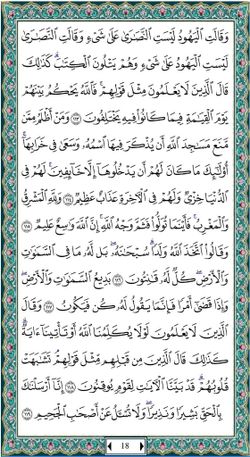 وَقَالَتِ ٱلْيَهُودُ لَيْسَتِ ٱلنَّصَٰرَىٰ عَلَىٰ شَىْءٍ وَقَالَتِ ٱلنَّصَٰرَىٰ
لَيْسَتِ ٱلْيَهُودُ عَلَىٰ شَىْءٍ وَهُمْ يَتْلُونَ ٱلْكِتَٰبَ ۗ كَذَٰلِكَ
قَالَ ٱلَّذِينَ لَا يَعْلَمُونَ مِثْلَ قَوْلِهِمْ ۚ فَٱللَّهُ يَحْكُمُ بَيْنَهُمْ
يَوْمَ ٱلْقِيَٰمَةِ فِيمَا كَانُوا۟ فِيهِ يَخْتَلِفُونَ ١١٣ وَمَنْ أَظْلَمُ مِمَّن
مَّنَعَ مَسَٰجِدَ ٱللَّهِ أَن يُذْكَرَ فِيهَا ٱسْمُهُۥ وَسَعَىٰ فِى خَرَابِهَآ ۚ
أُو۟لَٰٓئِكَ مَا كَانَ لَهُمْ أَن يَدْخُلُوهَآ إِلَّا خَآئِفِينَ ۚ لَهُمْ فِى
ٱلدُّنْيَا خِزْىٌ وَلَهُمْ فِى ٱلْءَاخِرَةِ عَذَابٌ عَظِيمٌ ١١٤ وَلِلَّهِ ٱلْمَشْرِقُ
وَٱلْمَغْرِبُ ۚ فَأَيْنَمَا تُوَلُّوا۟ فَثَمَّ وَجْهُ ٱللَّهِ ۚ إِنَّ ٱللَّهَ وَٰسِعٌ عَلِيمٌ ١١٥
وَقَالُوا۟ ٱتَّخَذَ ٱللَّهُ وَلَدًا ۗ سُبْحَٰنَهُۥ ۖ بَل لَّهُۥ مَا فِى ٱلسَّمَٰوَٰتِ
وَٱلْأَرْضِ ۖ كُلٌّ لَّهُۥ قَٰنِتُونَ ١١٦ بَدِيعُ ٱلسَّمَٰوَٰتِ وَٱلْأَرْضِ ۖ
وَإِذَا قَضَىٰٓ أَمْرًا فَإِنَّمَا يَقُولُ لَهُۥ كُن فَيَكُونُ ١١٧ وَقَالَ
ٱلَّذِينَ لَا يَعْلَمُونَ لَوْلَا يُكَلِّمُنَا ٱللَّهُ أَوْ تَأْتِينَآ ءَايَةٌ ۗ
كَذَٰلِكَ قَالَ ٱلَّذِينَ مِن قَبْلِهِم مِّثْلَ قَوْلِهِمْ ۘ تَشَٰبَهَتْ
قُلُوبُهُمْ ۗ قَدْ بَيَّنَّا ٱلْءَايَٰتِ لِقَوْمٍ يُوقِنُونَ ١١٨ إِنَّآ أَرْسَلْنَٰكَ
بِٱلْحَقِّ بَشِيرًا وَنَذِيرًا ۖ وَلَا تُسْـَٔلُ عَنْ أَصْحَٰبِ ٱلْجَحِيمِ ١١٩
18